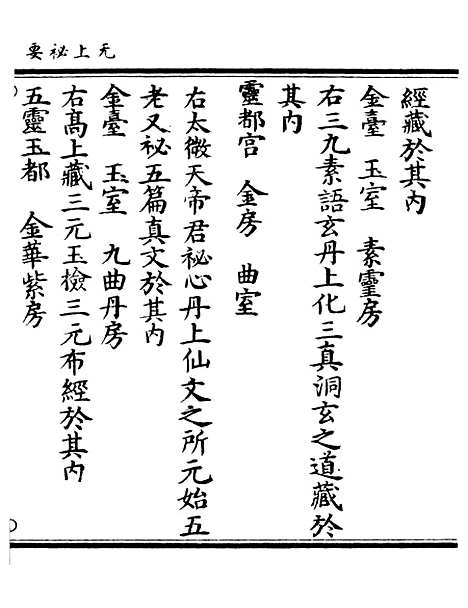 无上祕要
經藏於其内
金臺　玉室　素靈房
右三九素語玄丹上化三真洞玄之道藏於
其内
靈都宫　金房　曲室
右太微天帝君祕心丹上仙文之所元始五
老又祕五篇真文於其内
金臺　玉室　九曲丹房
右髙上藏三元玉檢三元布經於其内
五靈玉都　金華紫房